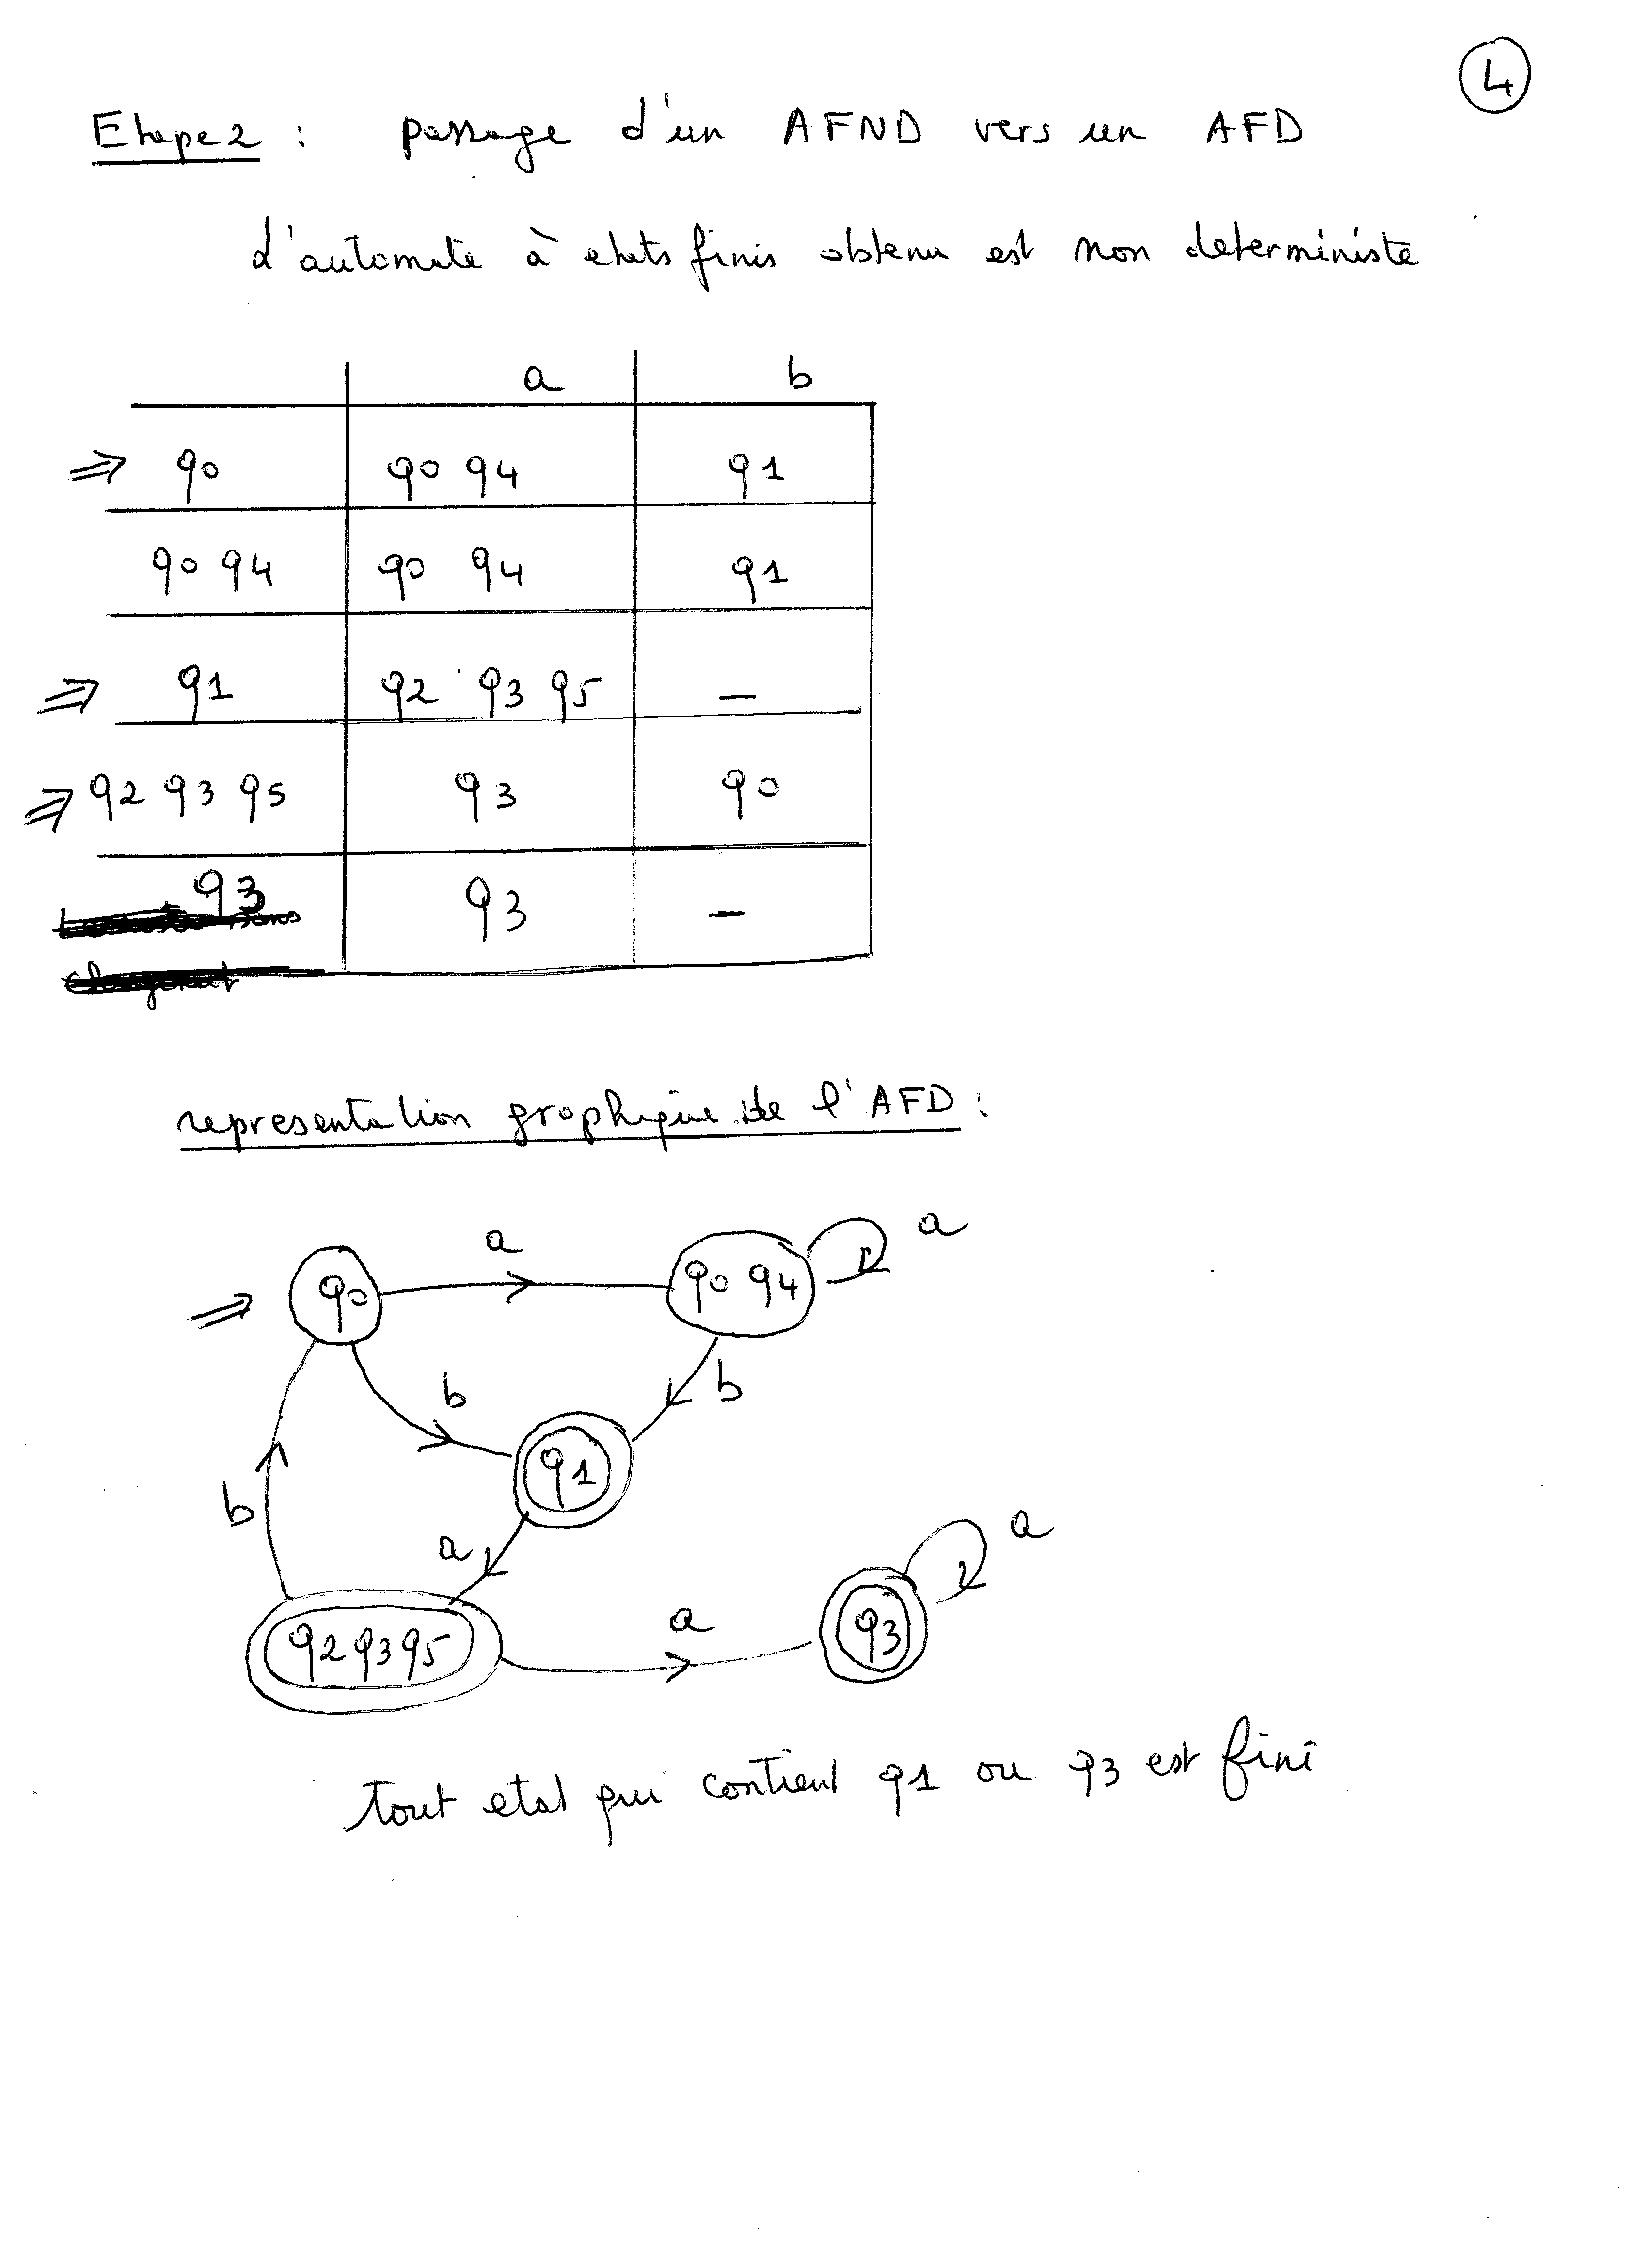 4
Etape2 : passage d'un AFND vers un AFD
L'automate à etats finis obtenu est non deterministe
a b
⇒ q0 q0 q4 q1
q0 q4 q0 q4 q1
⇒ q1 q2 q3 q5 –
⇒ q2 q3 q5 q3 q0
q3 q3 –
representation graphique de l'AFD :
a
a
⇒ q0 q0 q4
b b
q1
b
a
a
a
q2 q3 q5 q3
tout etat qui contient q1 ou q3 est fini